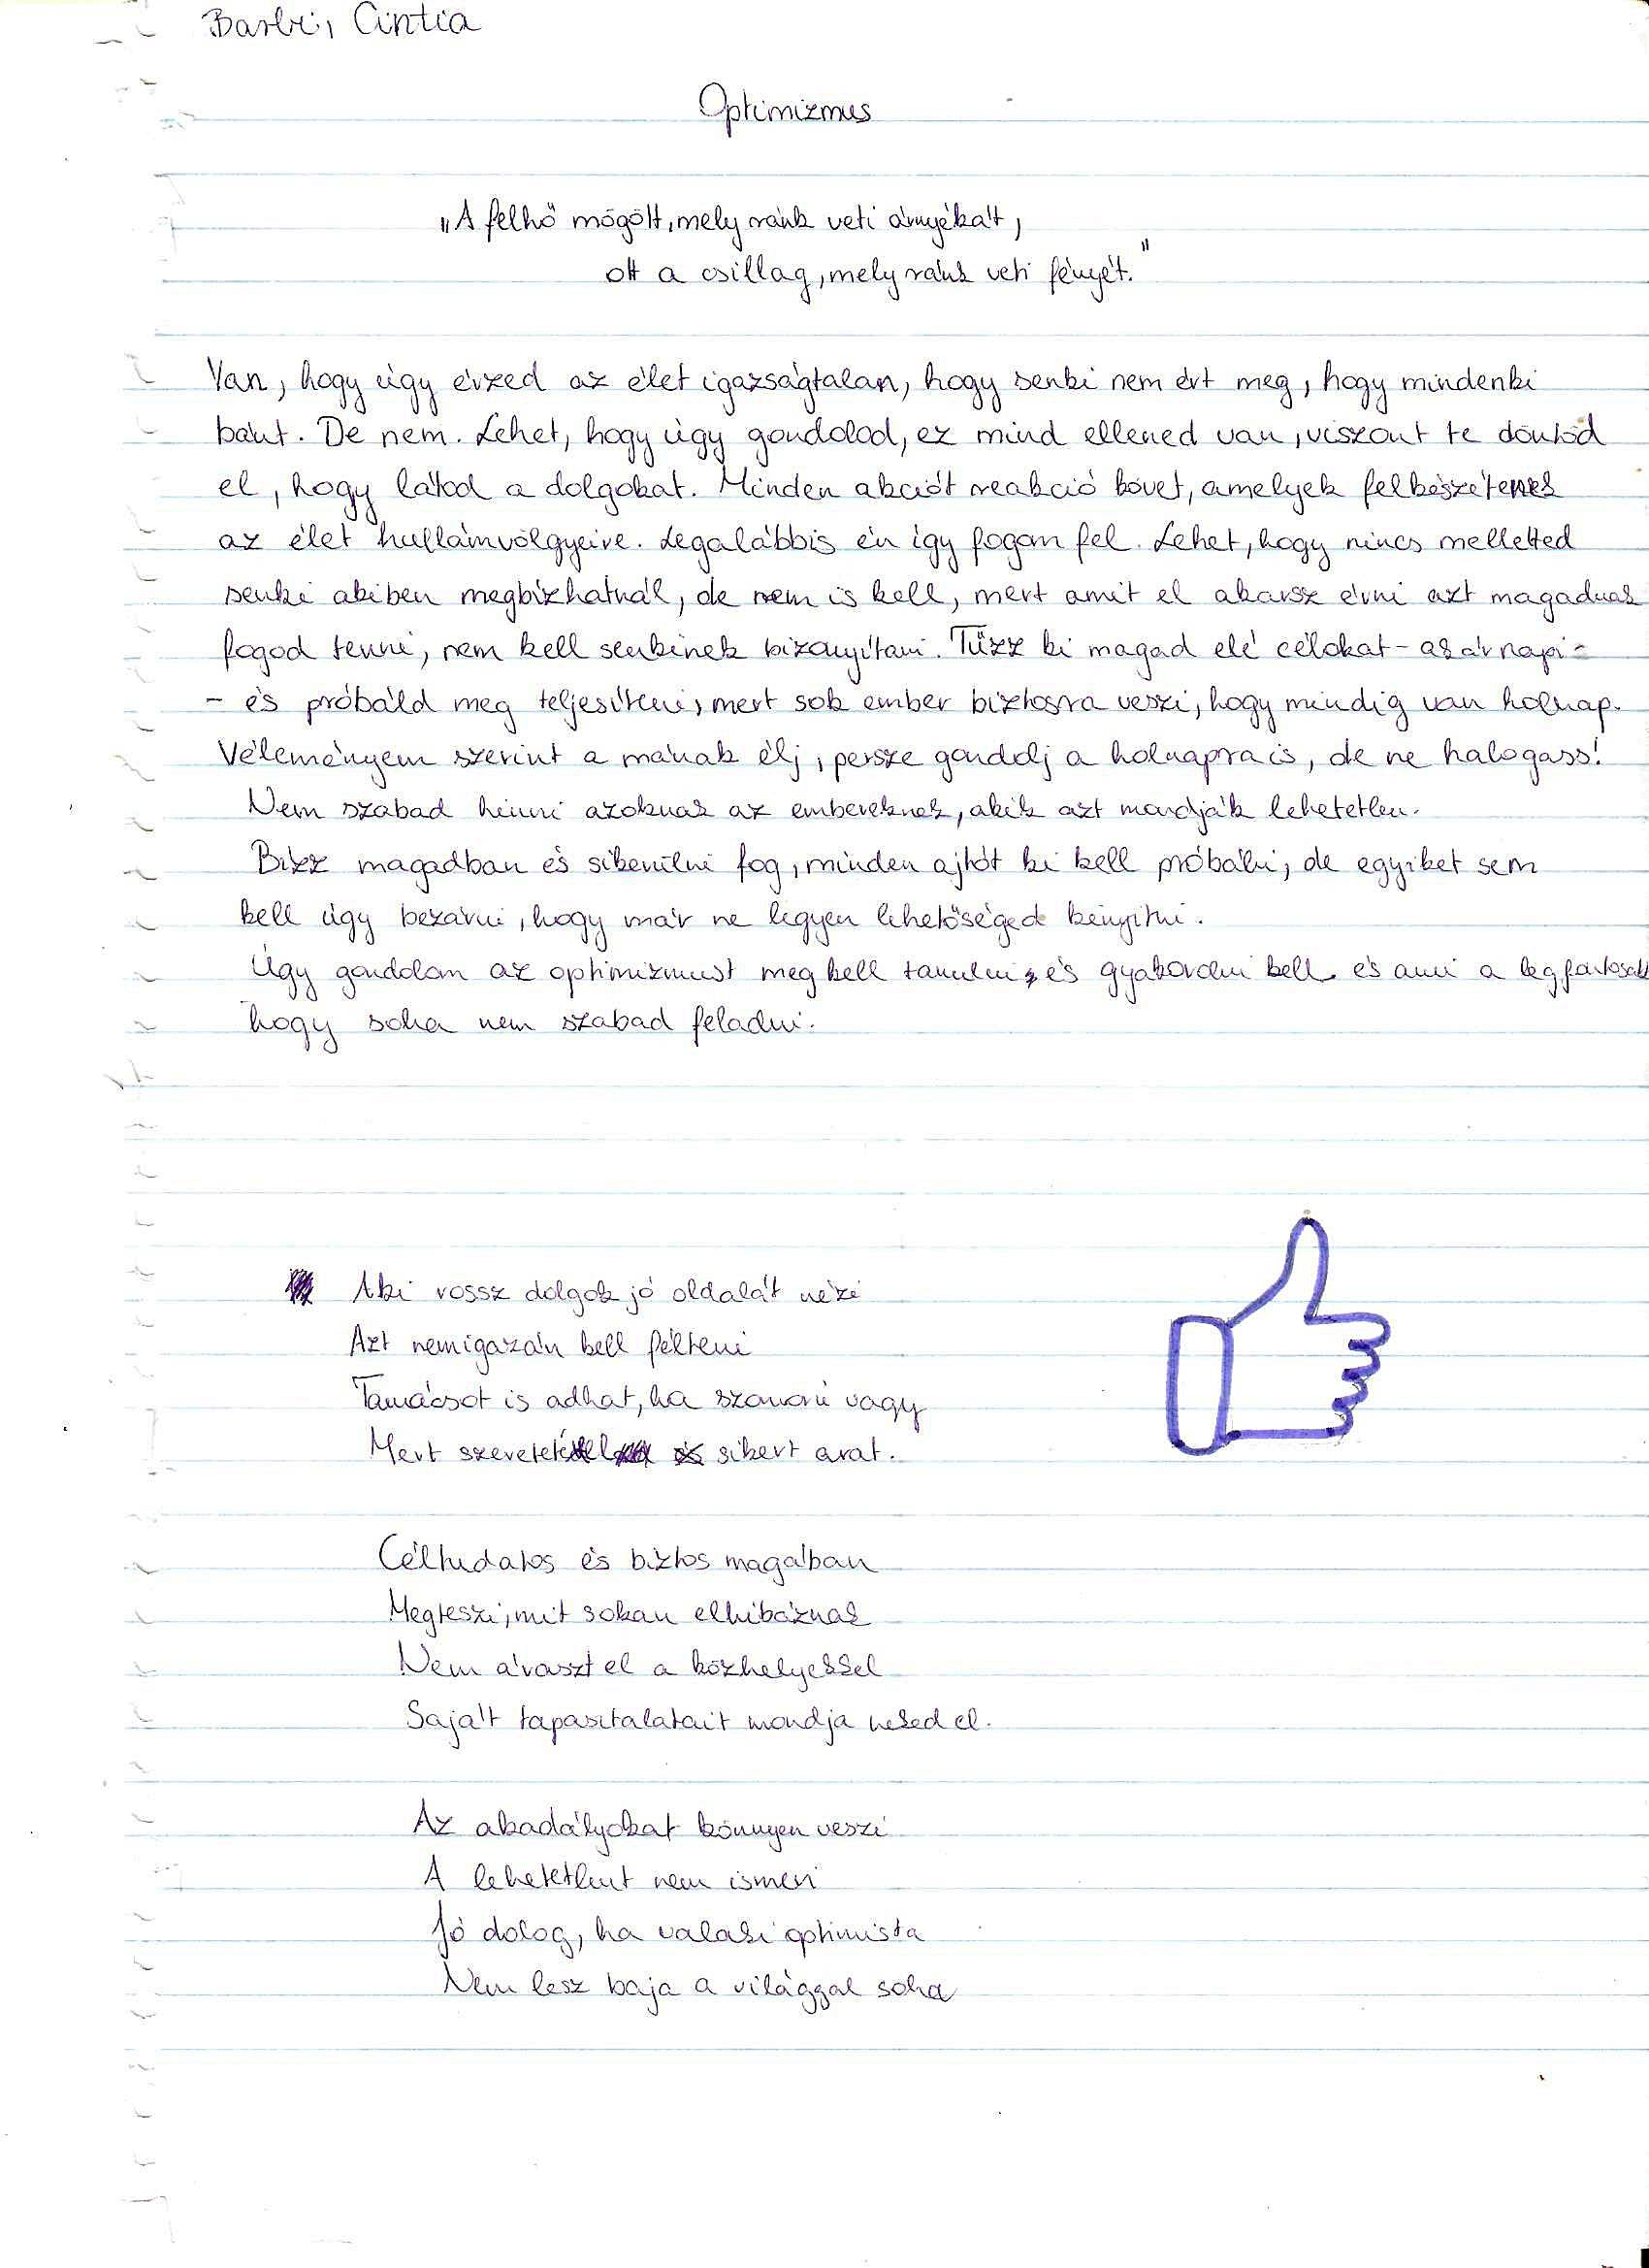 Barbi, Cintia
Optimizmus
"A felhő mögött, mely ránk veti árnyékát,
ott a csillag, mely ránk veti fényét."
Van, hogy úgy érzed az élet igazságtalan, hogy senki nem ért meg, hogy mindenki
bánt. De nem. Lehet, hogy úgy gondolod, ez mind ellened van, viszont te döntöd
el, hogy látod a dolgokat. Minden akciót reakció követ, amelyek felkészítenek
az élet hullámvölgyeire. Legalábbis én így fogom fel. Lehet, hogy nincs melletted
senki akiben megbízhatnál, de nem is kell, mert amit el akarsz érni azt magadnak
fogod tenni, nem kell senkinek bizonyítani. Tűzz ki magad elé célokat - akár napi -
- és próbáld meg teljesíteni, mert sok ember biztosra veszi, hogy mindig van holnap.
Véleményem szerint a mának élj, persze gondolj a holnapra is, de ne halogass!
Nem szabad hinni azoknak az embereknek, akik azt mondják lehetetlen.
Bízz magadban és sikerülni fog, minden ajtót ki kell próbálni, de egyiket sem
kell úgy bezárni, hogy már ne legyen lehetőséged kinyitni.
Úgy gondolom az optimizmust meg kell tanulni, és gyakorolni kell és ami a legfontosabb
hogy soha nem szabad feladni.
Aki rossz dolgok jó oldalát nézi
Azt nemigazán kell félteni
Tanácsot is adhat, ha szomorú vagy
Mert szeretettel sikert arat.
Céltudatos és biztos magában
Megteszi, mit sokan elhibáznak
Nem áraszt el a közhelyekkel
Saját tapasztalatait mondja neked el.
Az akadályokat könnyen veszi
A lehetetlent nem ismeri
Jó dolog, ha valaki optimista
Nem lesz baja a világgal soha